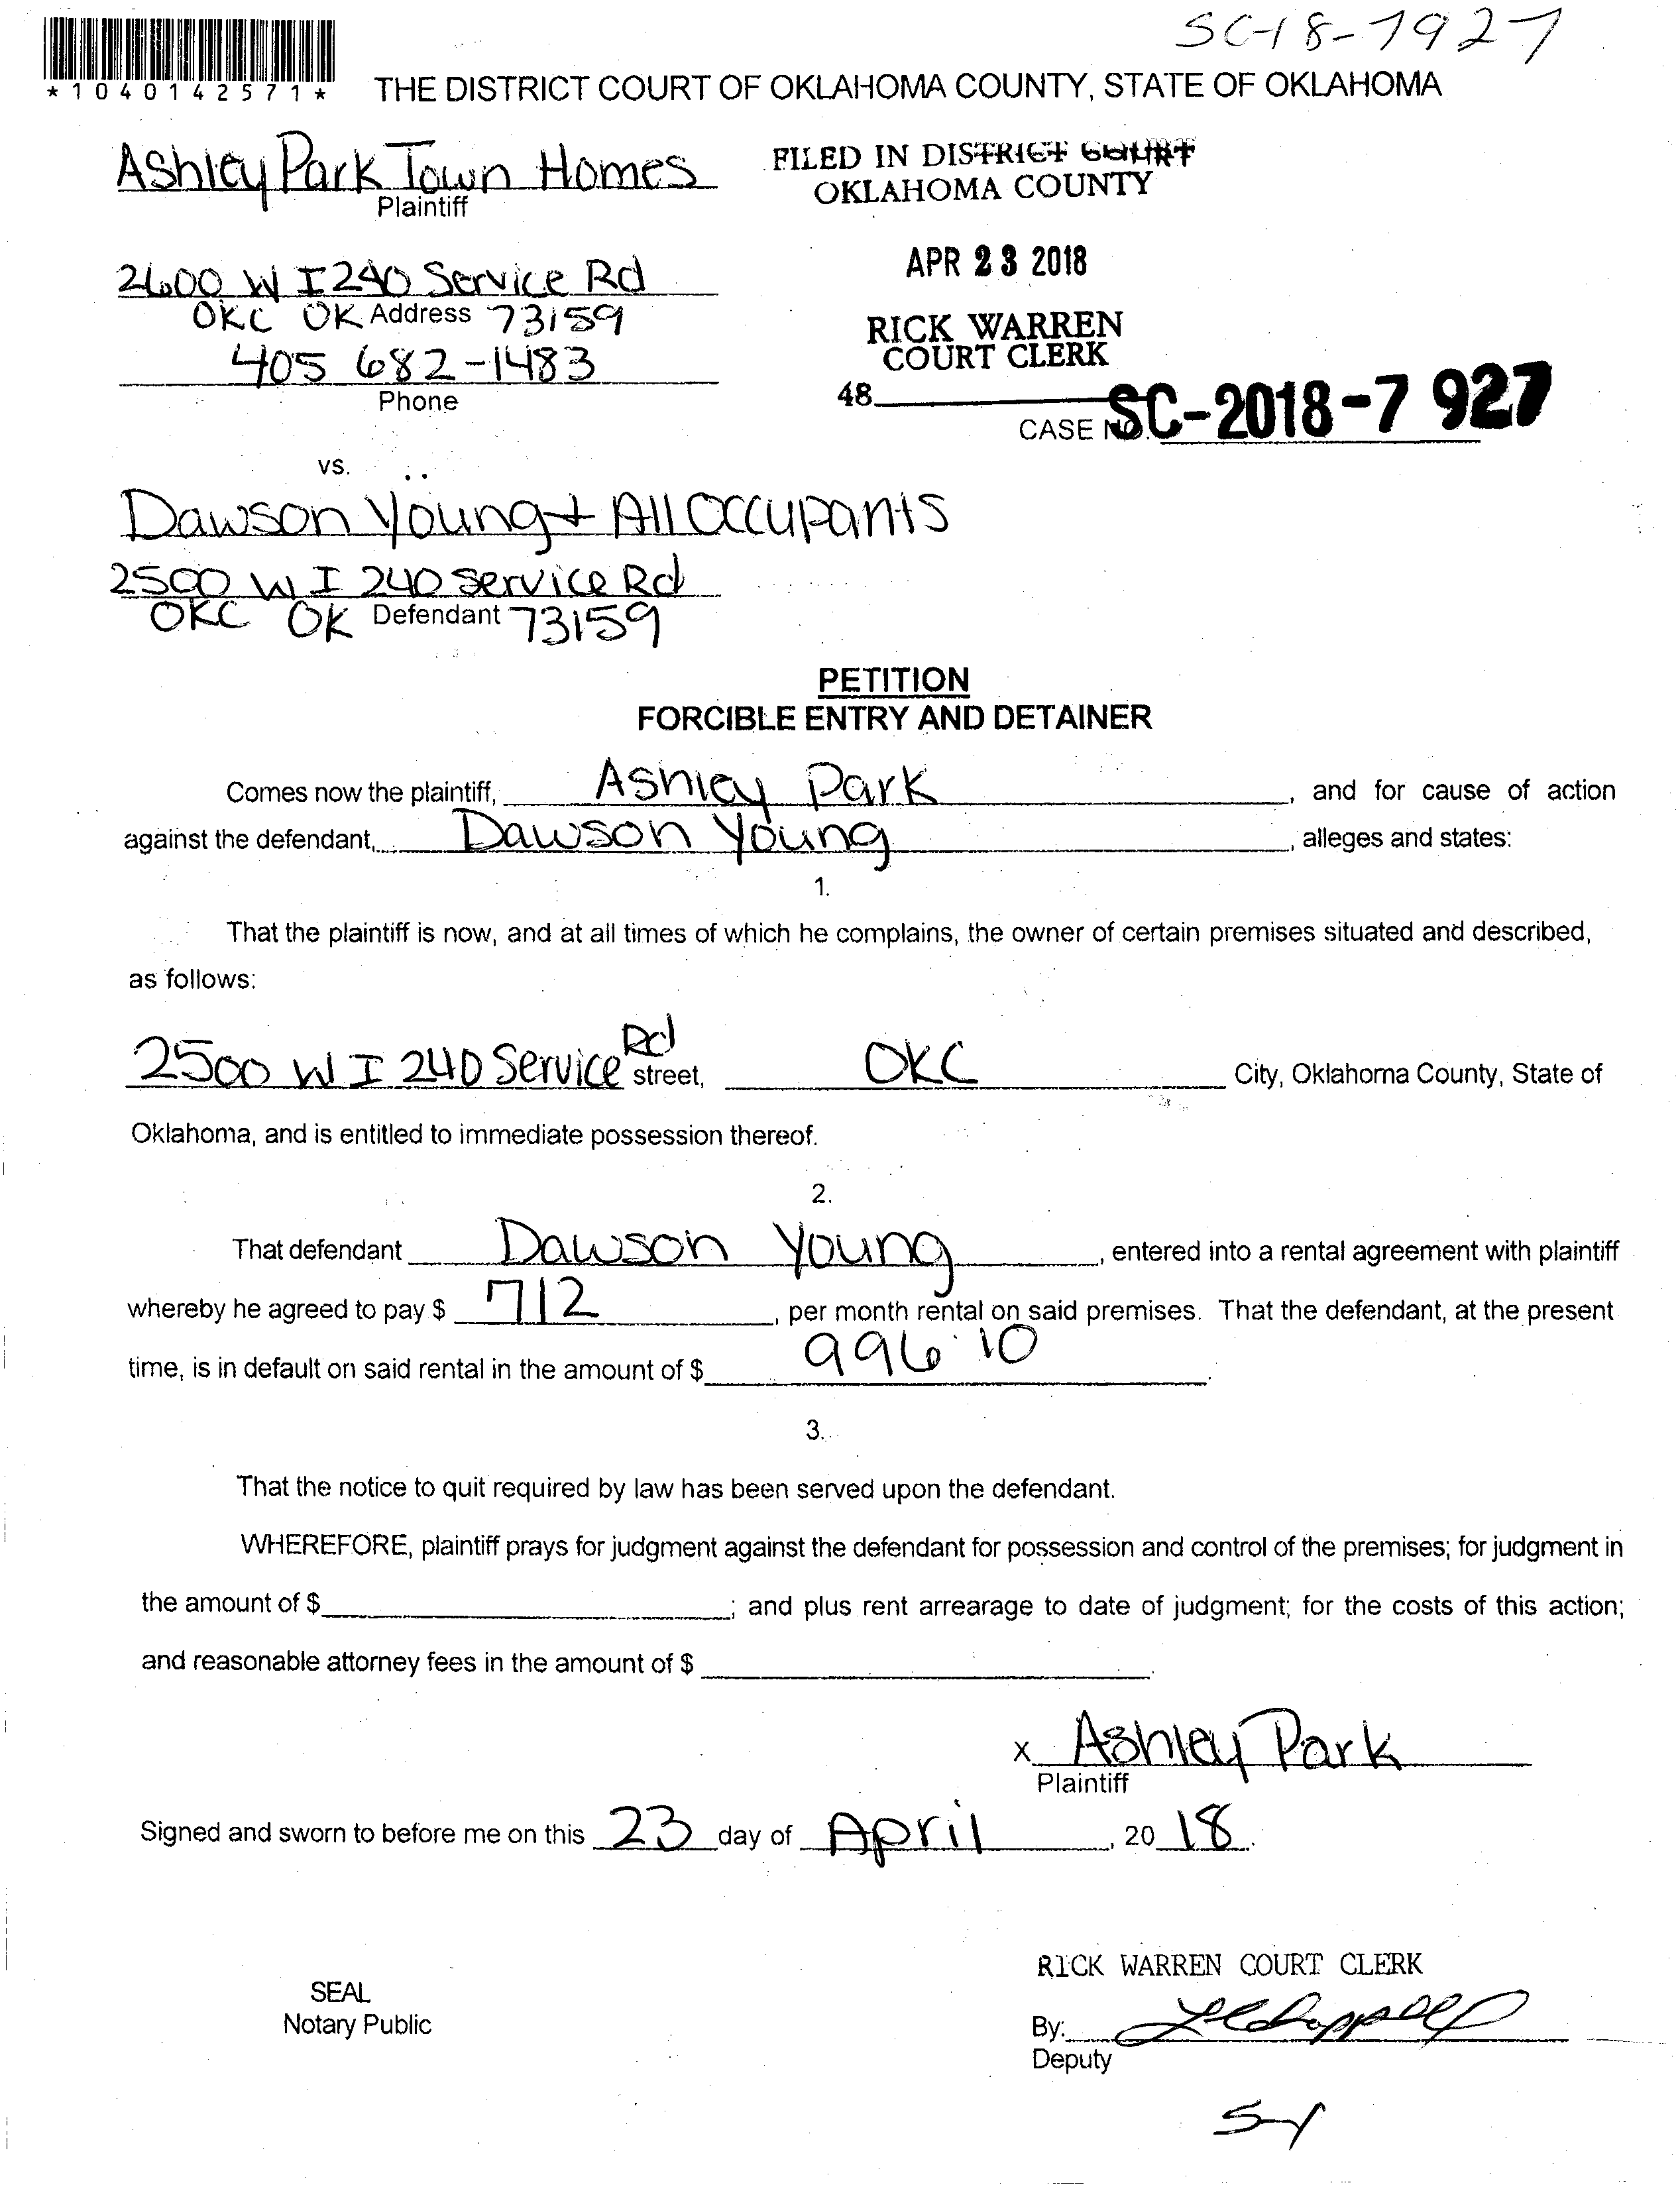 SC-18-7927
*1040142571*
THE DISTRICT COURT OF OKLAHOMA COUNTY, STATE OF OKLAHOMA
Ashley Park Town Homes
Plaintiff
FILED IN DISTRICT COURT
OKLAHOMA COUNTY
2600 W I 240 Service Rd
OKC OK Address 73159
APR 23 2018
405 682-1483
Phone
RICK WARREN
COURT CLERK
48
CASE NO. SC-2018-7 927
vs.
Dawson Young + All Occupants
2500 W I 240 Service Rd
OKC OK Defendant 73159
PETITION
FORCIBLE ENTRY AND DETAINER
Comes now the plaintiff, Ashley Park, and for cause of action
against the defendant, Dawson Young, alleges and states:
1.
That the plaintiff is now, and at all times of which he complains, the owner of certain premises situated and described,
as follows:
2500 W I 240 Service Rd street, OKC City, Oklahoma County, State of
Oklahoma, and is entitled to immediate possession thereof.
2.
That defendant Dawson Young, entered into a rental agreement with plaintiff
whereby he agreed to pay $ 712, per month rental on said premises. That the defendant, at the present
time, is in default on said rental in the amount of $ 996 10.
3.
That the notice to quit required by law has been served upon the defendant.
WHEREFORE, plaintiff prays for judgment against the defendant for possession and control of the premises; for judgment in
the amount of $ ; and plus rent arrearage to date of judgment; for the costs of this action;
and reasonable attorney fees in the amount of $ .
x Ashley Park
Plaintiff
Signed and sworn to before me on this 23 day of April, 20 18.
RICK WARREN COURT CLERK
SEAL
Notary Public
By:
Deputy